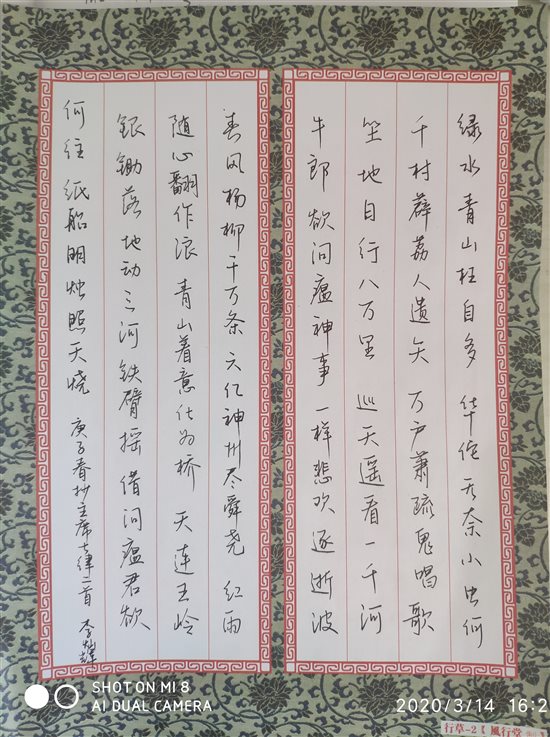 绿水青山枉自多 华佗无奈小虫何
千村薜荔人遗矢 万户萧疏鬼唱歌
坐地日行八万里 巡天遥看一千河
牛郎欲问瘟神事 一样悲欢逐逝波
春风杨柳千万条 六亿神州尽舜尧 红雨
随心翻作浪 青山着意化为桥 天连五岭
银锄落 地动三河铁臂摇 借问瘟君欲
何往 纸船明烛照天烧 庚子春抄主席七律二首 李
SHOT ON MI 8
AI DUAL CAMERA
2020/3/14 16:2
行草-2【風行堂